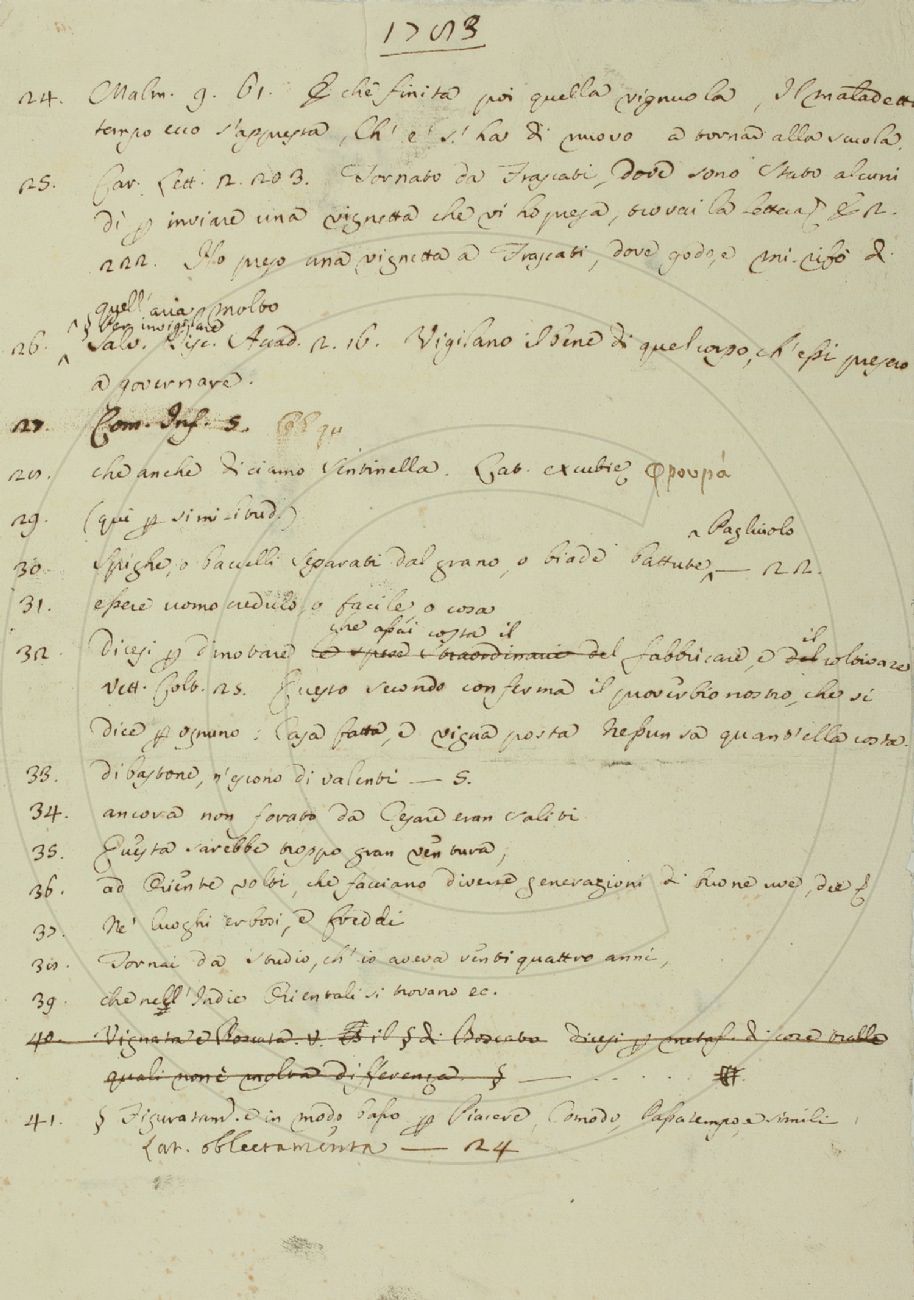 1783
24. Malm. 9. 61. E che finita poi quella vignuola, Il maladetto
tempo ecco s'appressa, Ch' e' s' ha di nuovo a tornar alla scuola.
25. Car. Lett. 2. 203. Tornato da Frascati, dove sono stato alcuni
dì p inviare una vignetta che vi ho presa, trovai la lettera E 2.
222. Ho preso una vignetta a Frascati, dove godo, e mi rifò di
quell'aria molto
§ Per invigilare
26. Salv. Disc. Accad. 2. 16. Vigilano il bene di quel corpo, ch'essi presero
a governare.
27. Com. Inf. 5.
28. che anche diciamo Sentinella. Lat. excubię φρουρά
29. (qui p similitud.)
^ Pagliuolo
30. Spighe, o baccelli separati dal grano, o biade battute ^ — 22.
31. essere uomo credulo, o facile, o cosa
che assai costa il
32. Dicesi p dinotare e spese straordinarie del fabbricare, e del il coltivare
Vett. Colt. 25. Questo secondo conferma il proverbio nostro, che si
dice p ognuno: Casa fatta, e vigna posta Nessun sa quant'ella costa.
33. di bastone, n'escono di valenti — 5.
34. ancora non forato da Cesare eran saliti
35. Questa sarebbe troppo gran ventura;
36. ad Oriente volti, che facciano diverse generazioni di buone uve, dee
37. Ne' luoghi erbosi, e freddi
38. Tornai da studio, ch'io aveva venti quattro anni,
39. che nell'Indie Orientali si trovano ec.
40. Vignata e Boscata. v. il § di Boscata dicesi p metaf. di cose tralle
quali non è molta differenza. §
41. § Figuratam. e in modo basso p Piacere, Comodo, Passatempo, e simili
Lat. oblectamenta — 24